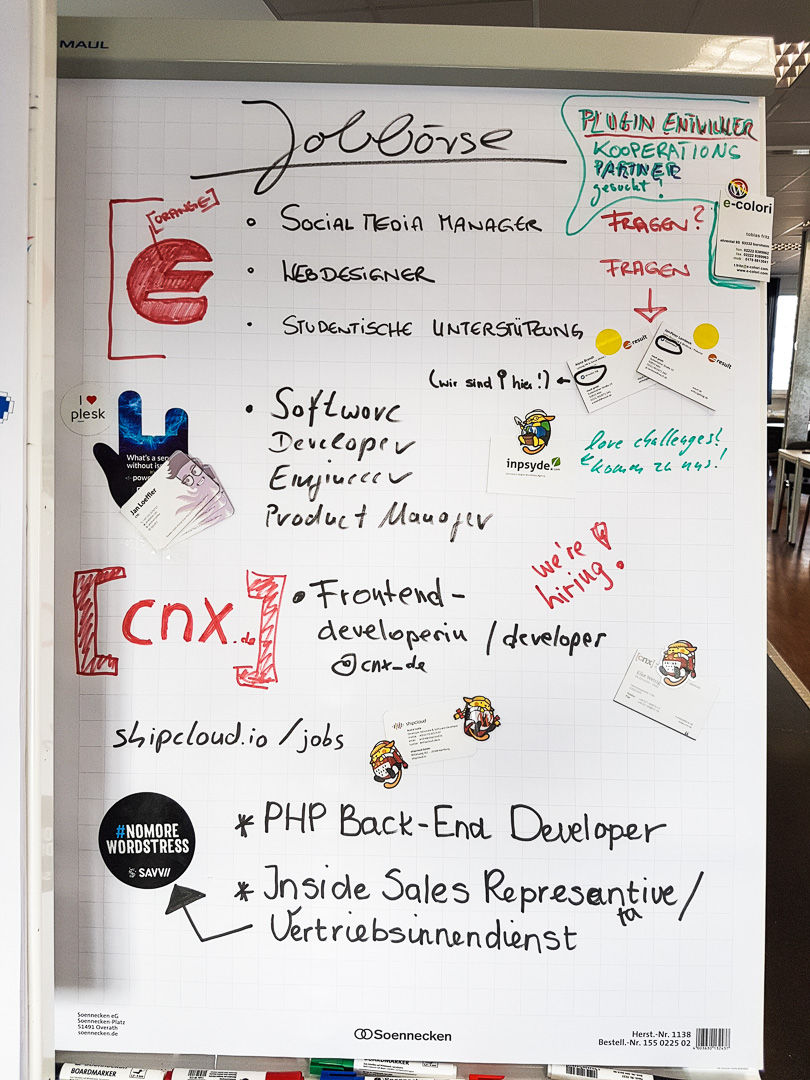 MAUL
Jobbörse
PLUGIN ENTWICKLER
KOOPERATIONS
PARTNER
gesucht!
e-colori
tobias fritz
www.e-colori.com
[ORANGE]
• SOCIAL MEDIA MANAGER
FRAGEN?
• WEBDESIGNER
FRAGEN
• STUDENTISCHE UNTERSTÜTZUNG
result
result
(wir sind hier!)
I ♥
plesk
What's a ser
without iss
power
Jan Loeffler
• Software
Developer
Engineer
Product Manager
inpsyde
love challenges?
komm zu uns!
we're
hiring.
[cnx.de]
• Frontend-
developerin / developer
@cnx_de
[cnx]
shipcloud.io/jobs
shipcloud
#NOMORE
WORDSTRESS
SAVVII
* PHP Back-End Developer
* Inside Sales Represantive/
ta
Vertriebsinnendienst
Soennecken eG
Soennecken-Platz
51491 Overath
soennecken.de
Soennecken
Herst.-Nr. 1138
Bestell.-Nr. 155 0225 02
BOARDMARKER
BOARDMARKER